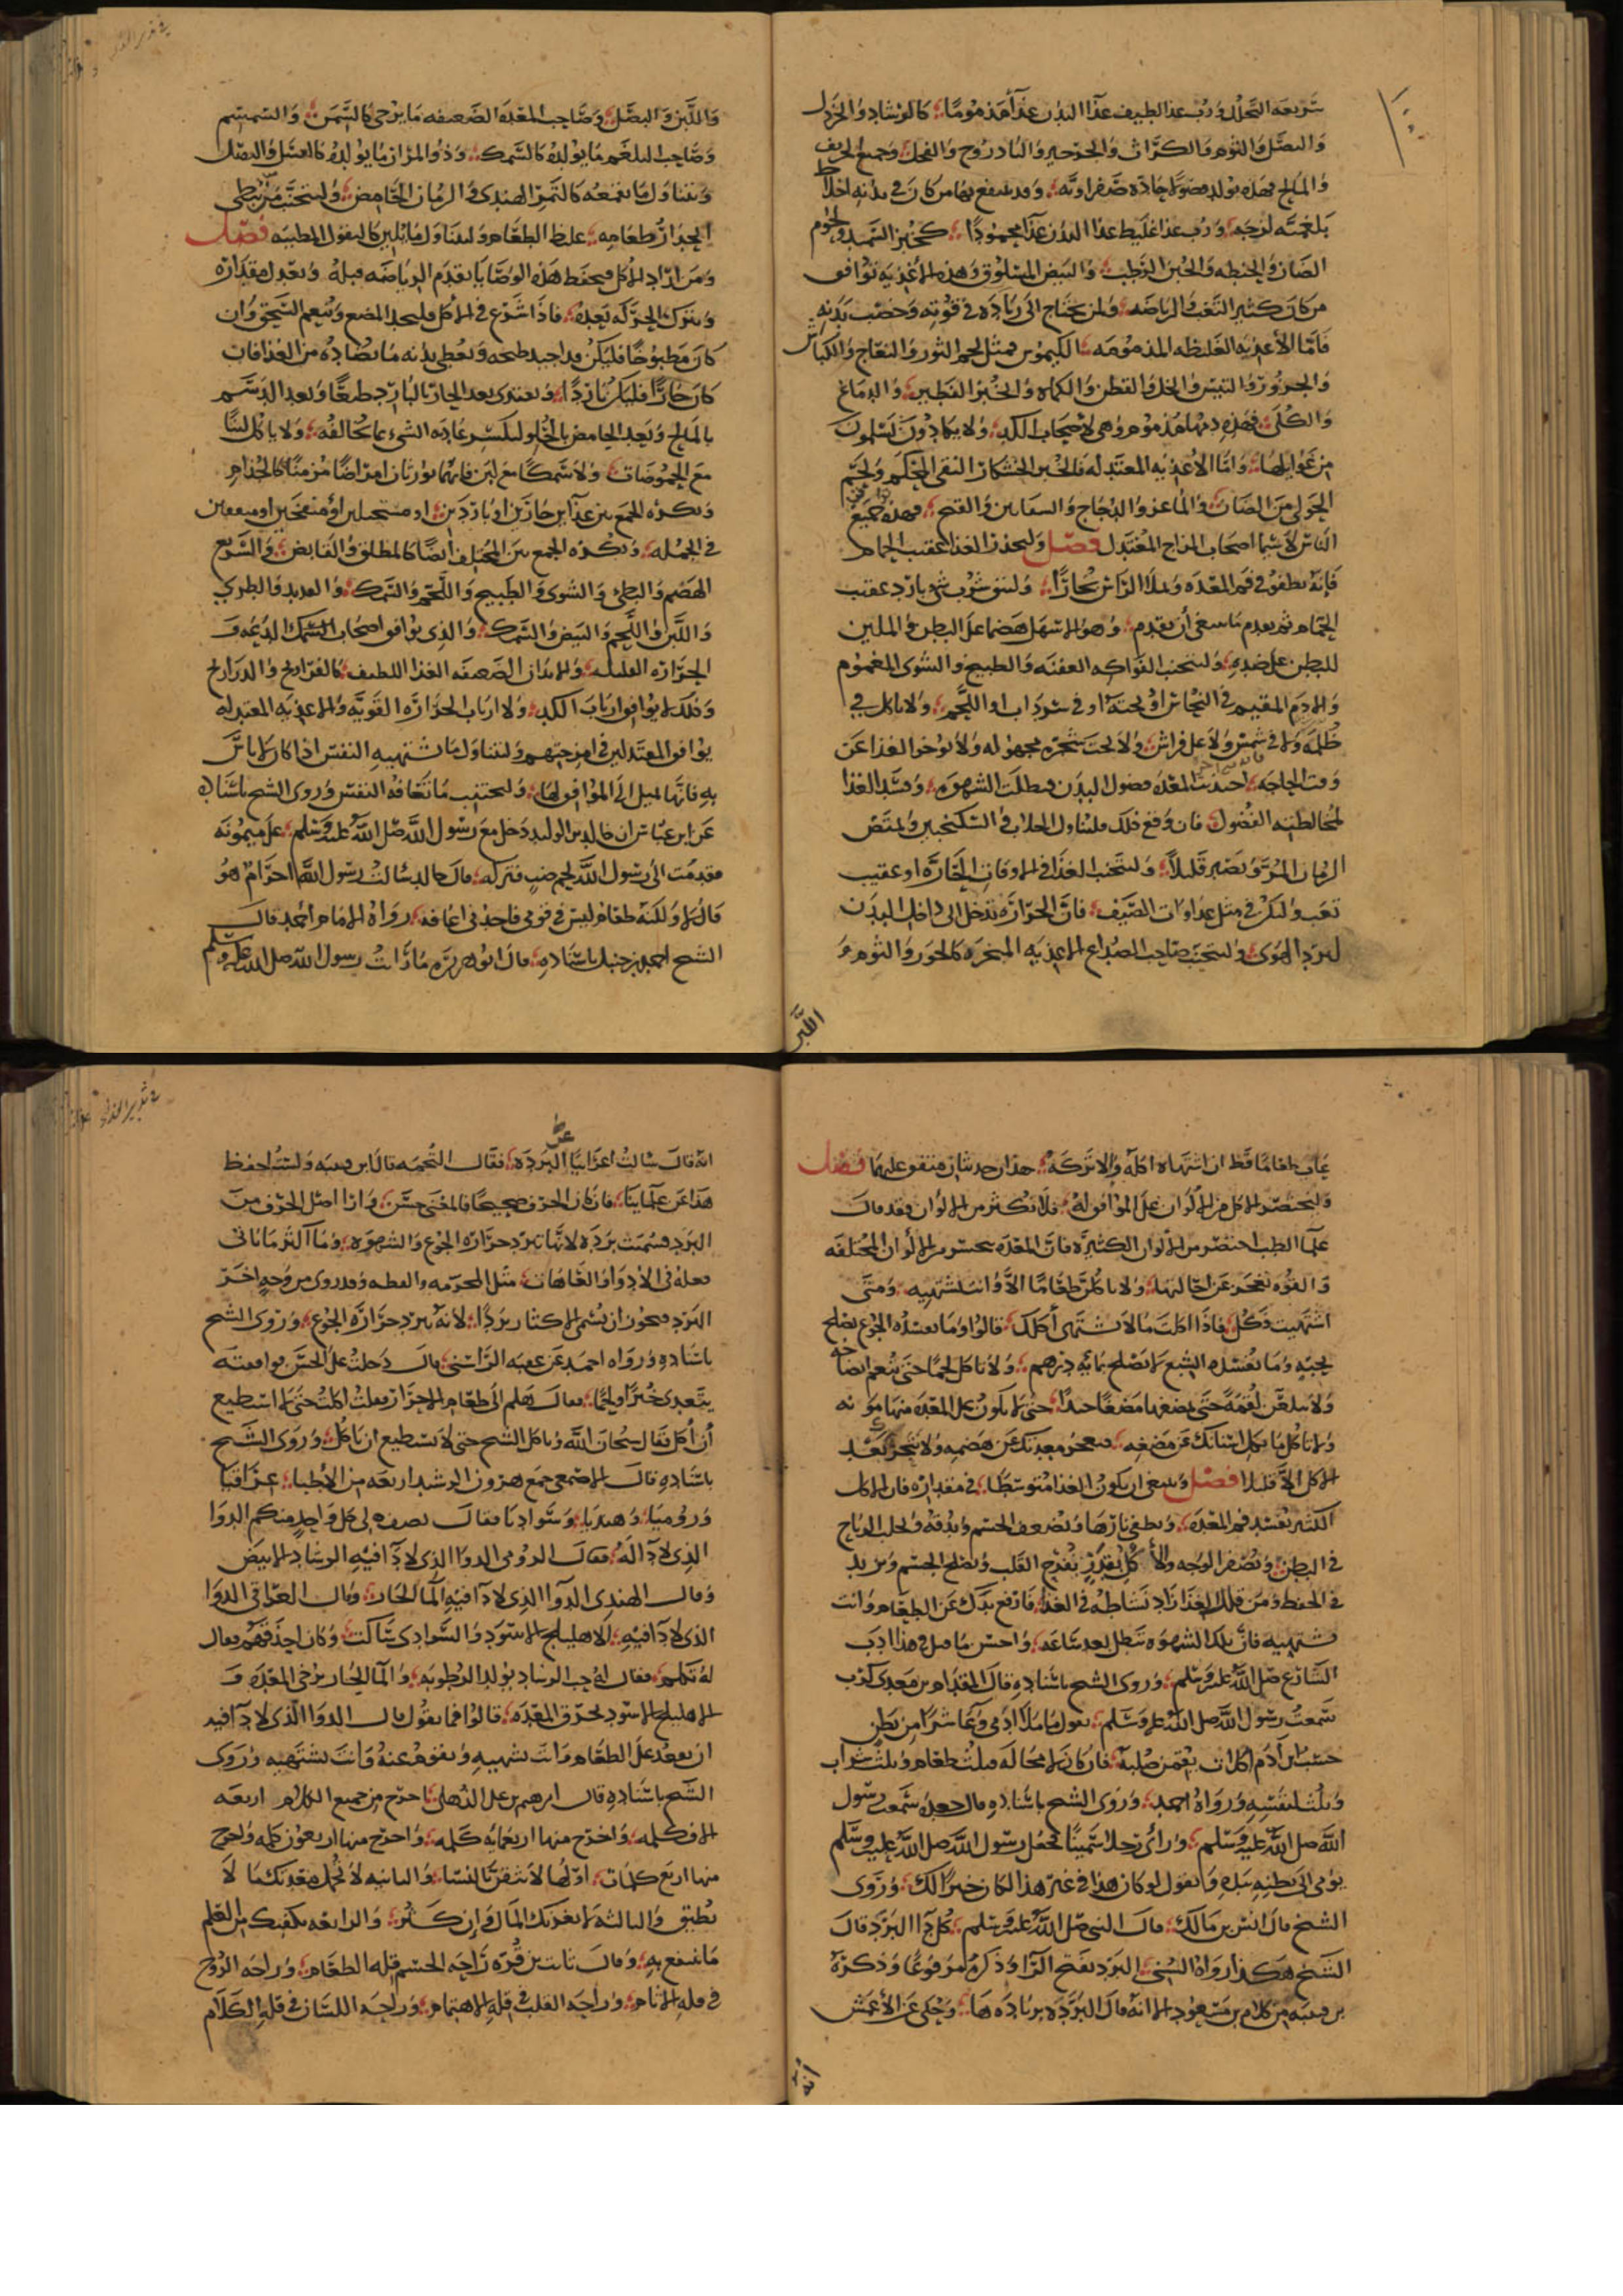 شريعه التحلل ورب غذا لطيف غذا البدن غذا مذموما كالرشاد والخردل
والبصل والثوم والكراث والجرجير والبادروج والفجل وجميع الحريف
والمالح فهذه يولد فضولا حاده صفراويه وقد ينتفع بها من كان في بدنه اخلاط
بلغميه لزجه ورب غذا غليظ غذا البدن غذا محمودا كخبز السميد ولحوم
الضان والحنطه والجبن الرطب والبيض المسلوق وهذه الاغذيه توافق
من كان كثير التعب والرياضه ولمن يحتاج الى زياده في قوته وخصب بدنه
فاما الأغذيه الغليظه المذمومه الكيموس فمثل لحم الثور والنعاج والكباش
والجزور والتيس والخل والقطن والكماه والخبز الفطير والدماغ
والكلى فهذه دمها مذموم وهي لاصحاب الكد ولا يكادون يسلمون
من غوايلها واما الاغذيه المعتدله فالخبز الخشكار النقى المحكم ولحم
الحولي من الضان والماعز والدجاج والقبج فهذه جميع
الناس لا سيما اصحاب المزاج المعتدل فصل وليحذر الغذا عقيب الحمام
فإنه يطفو في فم المعده ويملا الراس بخارا وليتق شرب شي بارد عقيب
الحمام ثم يقدم ما ينبغي أن يقدم وهو الاسهل هضما على البطن والملين
للبطن على ضده وليتجنب الفواكه العفنه والطبيخ والشوى المغموم
والادم المقيم في النحاس او لحته او في سرداب او اللحم ولا ياكل في
ظلمه ولا في شمس ولا على فراش ولا تحت شجره مجهوله ولا يوخر الغذا عن
وقت الحاجه اجتذبت المعده فضول البدن فبطلت الشهوه وفسد الغذا
لمخالطته الفضول فان وقع ذلك فليتناول الجلاب والسكنجبين وليمتص
الرمان المز ويصبر قليلا وليتجنب الغذا في الاوقات الحاره او عقيب
تعب وليكن في مثل غداوات الصيف فان الحراره تدخل الى داخل البدن
لبرد الهوى وليتجنب صاحب الصداع الاغذيه المبخره كالجوز والثوم و
اللبن
والللبن والبصل وصاحب المعده الضعيفه ما يرخى كالسمن والسمسم
وصاحب البلغم ما يولده كالسمك وذو المرار ما يولده كالعسل والبصل
ويتناول ما يقمعه كالتمر الهندي والرمان الحامض وليتجنب من يبطى
انحدار طعامه غليظ الطعام وليتناول ما يلين كالبقول الرطبه فصل
ومن اراد الاكل فليحفظ هذه الوصايا يقدم الرياضه قبله ويعدل مقداره
ويترك الحركه بعده فاذا شرع في الاكل فليجد المضغ وينعم السحق وان
كان مطبوخا فليكن قد اجيد طبخه ويعطى بدنه ما يضاده من الغذا فان
كان حارا فليكن باردا ويغتدى بعد الحار بالبارد طبعا وبعد الدسم
بالمالح وبعد الحامض بالحلو ليكسر عاديه الشيء بما يخالفه ولا ياكل لبنا
مع الحموضات ولا سمكا مع لبن فانهما يورثان امراضا مزمنا كالجذام
ويكره الجمع بين غذاين حارين او باردين او مستحيلين أو منفخين او
في الجمله ويكره الجمع بين المختلف أيضا كالمطلق والقابض والسريع
الهضم والبطئ والشوى والطبيخ واللحم والسمك والقديد والطري
واللبن واللحم والبيض والسمك والذي يوافق اصحاب السمك الدعه و
الحراره القليله والابدان الضعيفه الغذا اللطيف كالفراريج والدراريج
وذلك لا يوافق ارباب الكد ولا ارباب الحراره القويه والاغذيه المعتدله
يوافق المعتدلين في امزجتهم وليتناول ما تشتهيه النفس اذا كان لا باس
به فانها تميل الى الموافق لها وليجتنب ما تعافه النفس وروى الشيخ باسناده
عن ابن عباس ان خالد بن الوليد دخل مع رسول الله صلى الله عليه وسلم على ميمونه
فقدمت الى رسول الله لحم ضب فتركه قال خالد سالت رسول الله احرام هو
قال لا ولكنه طعام ليس في قومي فاجدني اعافه رواه الامام أحمد قال
الشيخ احمد بن حنبل باسناده قال ابو هريره ما رايت رسول الله صلى الله عليه وسلم
عاب طعاما قط ان اشتهاه اكله والا تركه هذان حديثان متفق عليهما فصل
وليختصر الاكل من الألوان على الموافق له فلا تكثر من الالوان فقد قال
علما الطب احتضر من الالوان الكثيره فان المعده تتحير من الألوان المختلفه
والقوه تعجز عن احالتها ولا ياكلن طعاما الا وانت تشتهيه ومتى
اشتهيت فكل فاذا اكلت ما لا تشتهى أكلك قالوا وما يفسده الجوع يصلح
بحبه وما يفسده الشبع لا يصلح بمايه درهم ولا تاكل لحما حتى تنعم انضاجه
ولا تبلعن لقمه حتى تمضغها مضغا جيدا حتى لا يكون على المعده منها مؤنه
ولا تاكل ما تكل اسنانك عن مضغه فتعجز معدتك عن هضمه ولا تتحرك بعد
الاكل الا قليلا فصل وينبغي ان يكون الغذا متوسطا في مقداره فان الاكل
الكثير يفسد فم المعده ويطفى نارها ويضعف الجسم ويدقه ويجلب الرياح
في البطن ويصفر الوجه والأكل بقدر يفرح القلب ويصلح الجسم ويزيد
في الحفظ ومن قلل الغذا زاد نشاطه في الغذا فارفع يدك عن الطعام وانت
تشتهيه فان تلك الشهوه تبطل بعد ساعه واحسن ما قيل في هذا ادب
الشارع صلى الله عليه وسلم وروى الشيخ باسناده قال المقدام بن معدي كرب
سمعت رسول الله صلى الله عليه وسلم يقول ما ملا ادمي وعا شرا من بطن
حسب ابن آدم اكلات يقمن صلبه فان كان لا محاله فثلث طعام وثلث شراب
وثلث لنفسه ورواه احمد وروى الشيخ باسناده قال جعده سمعت رسول
الله صلى الله عليه وسلم ورأى رجلا سمينا فجعل رسول الله صلى الله عليه وسلم
يومى الى بطنه بيده ويقول لو كان هذا في غير هذا لكان خيرا لك وروى
الشيخ قال انس بن مالك قال النبي صلى الله عليه وسلم كل دا البرد قال
الشيخ هكذا رواه السني البرد بفتح الرا وذكره مرفوعا وذكره
بن قتيبه من كلام بن مسعود الا انه قال البرده بزياده ها وحكى عن الأعمش
انه
انه قال سالت اعرابيا عن البرده فقال التخمه قال ابن قتيبه ولست احفظ
هذا عن علمائنا فان كان الحرف صحيحا فالمعنى حسن وارا اصل الحرف من
البرد فسميت برده لانها تبرد حراره الجوع والشهوه وما اكثر ما تاتى
فعله في الادوا والعاهات مثل وقد روى من وجه اخر
البرد فيجوز ان يسمى الاكثار بردا لأنه يبرد حراره الجوع وروى الشيخ
باسناده ورواه احمد عن عقبه الراسي قال دخلت على الحسن فوافقته
يتغدى خبزا ولحما فقال هلم الى طعام الاحرار فقلت اكلت حتى لا استطيع
أن أكل فقال سبحان الله وياكل الشيخ حتى لا يستطيع ان ياكل وروى الشيخ
باسناده قال الاصمعي جمع هرون الرشيد اربعه من الأطبا عراقيا
وروميا وهنديا وسواديا فقال يصف لي كل واحد منكم الدوا
الذي لا دآ له فقال الرومي الدوا الذي لا دآ فيه الرشاد الابيض
وقال الهندى الدوا الذي لا دآ فيه الما الحار وقال العراقي الدوا
الذي لا دآ فيه الاهليلج الاسود والسوادي ساكت وكان احذقهم فقال
له تكلم فقال له حب الرشاد يولد الرطوبه والما الحار يرخى المعده و
الاهليلج الاسود يحرق المعده قالوا فما تقول قال الدوا الذي لا دآ فيه
ان تقعد على الطعام وانت تشتهيه وتقوم عنه وانت تشتهيه وروى
الشيخ باسناده قال ابرهيم بن على الذهلى اخرج من جميع الكلام اربعه
الاف كلمه واخرج منها اربعمايه كلمه واخرج منها اربعون كلمه واخرج
منها اربع كلمات اولها لا تثقن بالنسا والثانيه لا تحمل معدتك ما لا
تطيق والثالثه لا يغرنك المال وإن كثر والرابعه يكفيك من العلم
ما تنتفع به وقال ثابت بن قره راحه الجسم في قله الطعام وراحه الروح
في قله الاثام وراحه القلب في قله الاهتمام وراحه اللسان في قله الكلام